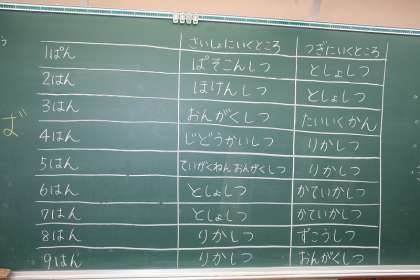 さいしょにいくところ つぎにいくところ
1ぱん ぱそこんしつ としょしつ
2はん ほけんしつ としょしつ
3はん おんがくしつ たいいくかん
4はん じどうかいしつ りかしつ
5はん ていがくねんおんがくしつ りかしつ
6はん としょしつ かていかしつ
7はん としょしつ かていかしつ
8はん りかしつ ずこうしつ
9はん りかしつ おんがくしつ